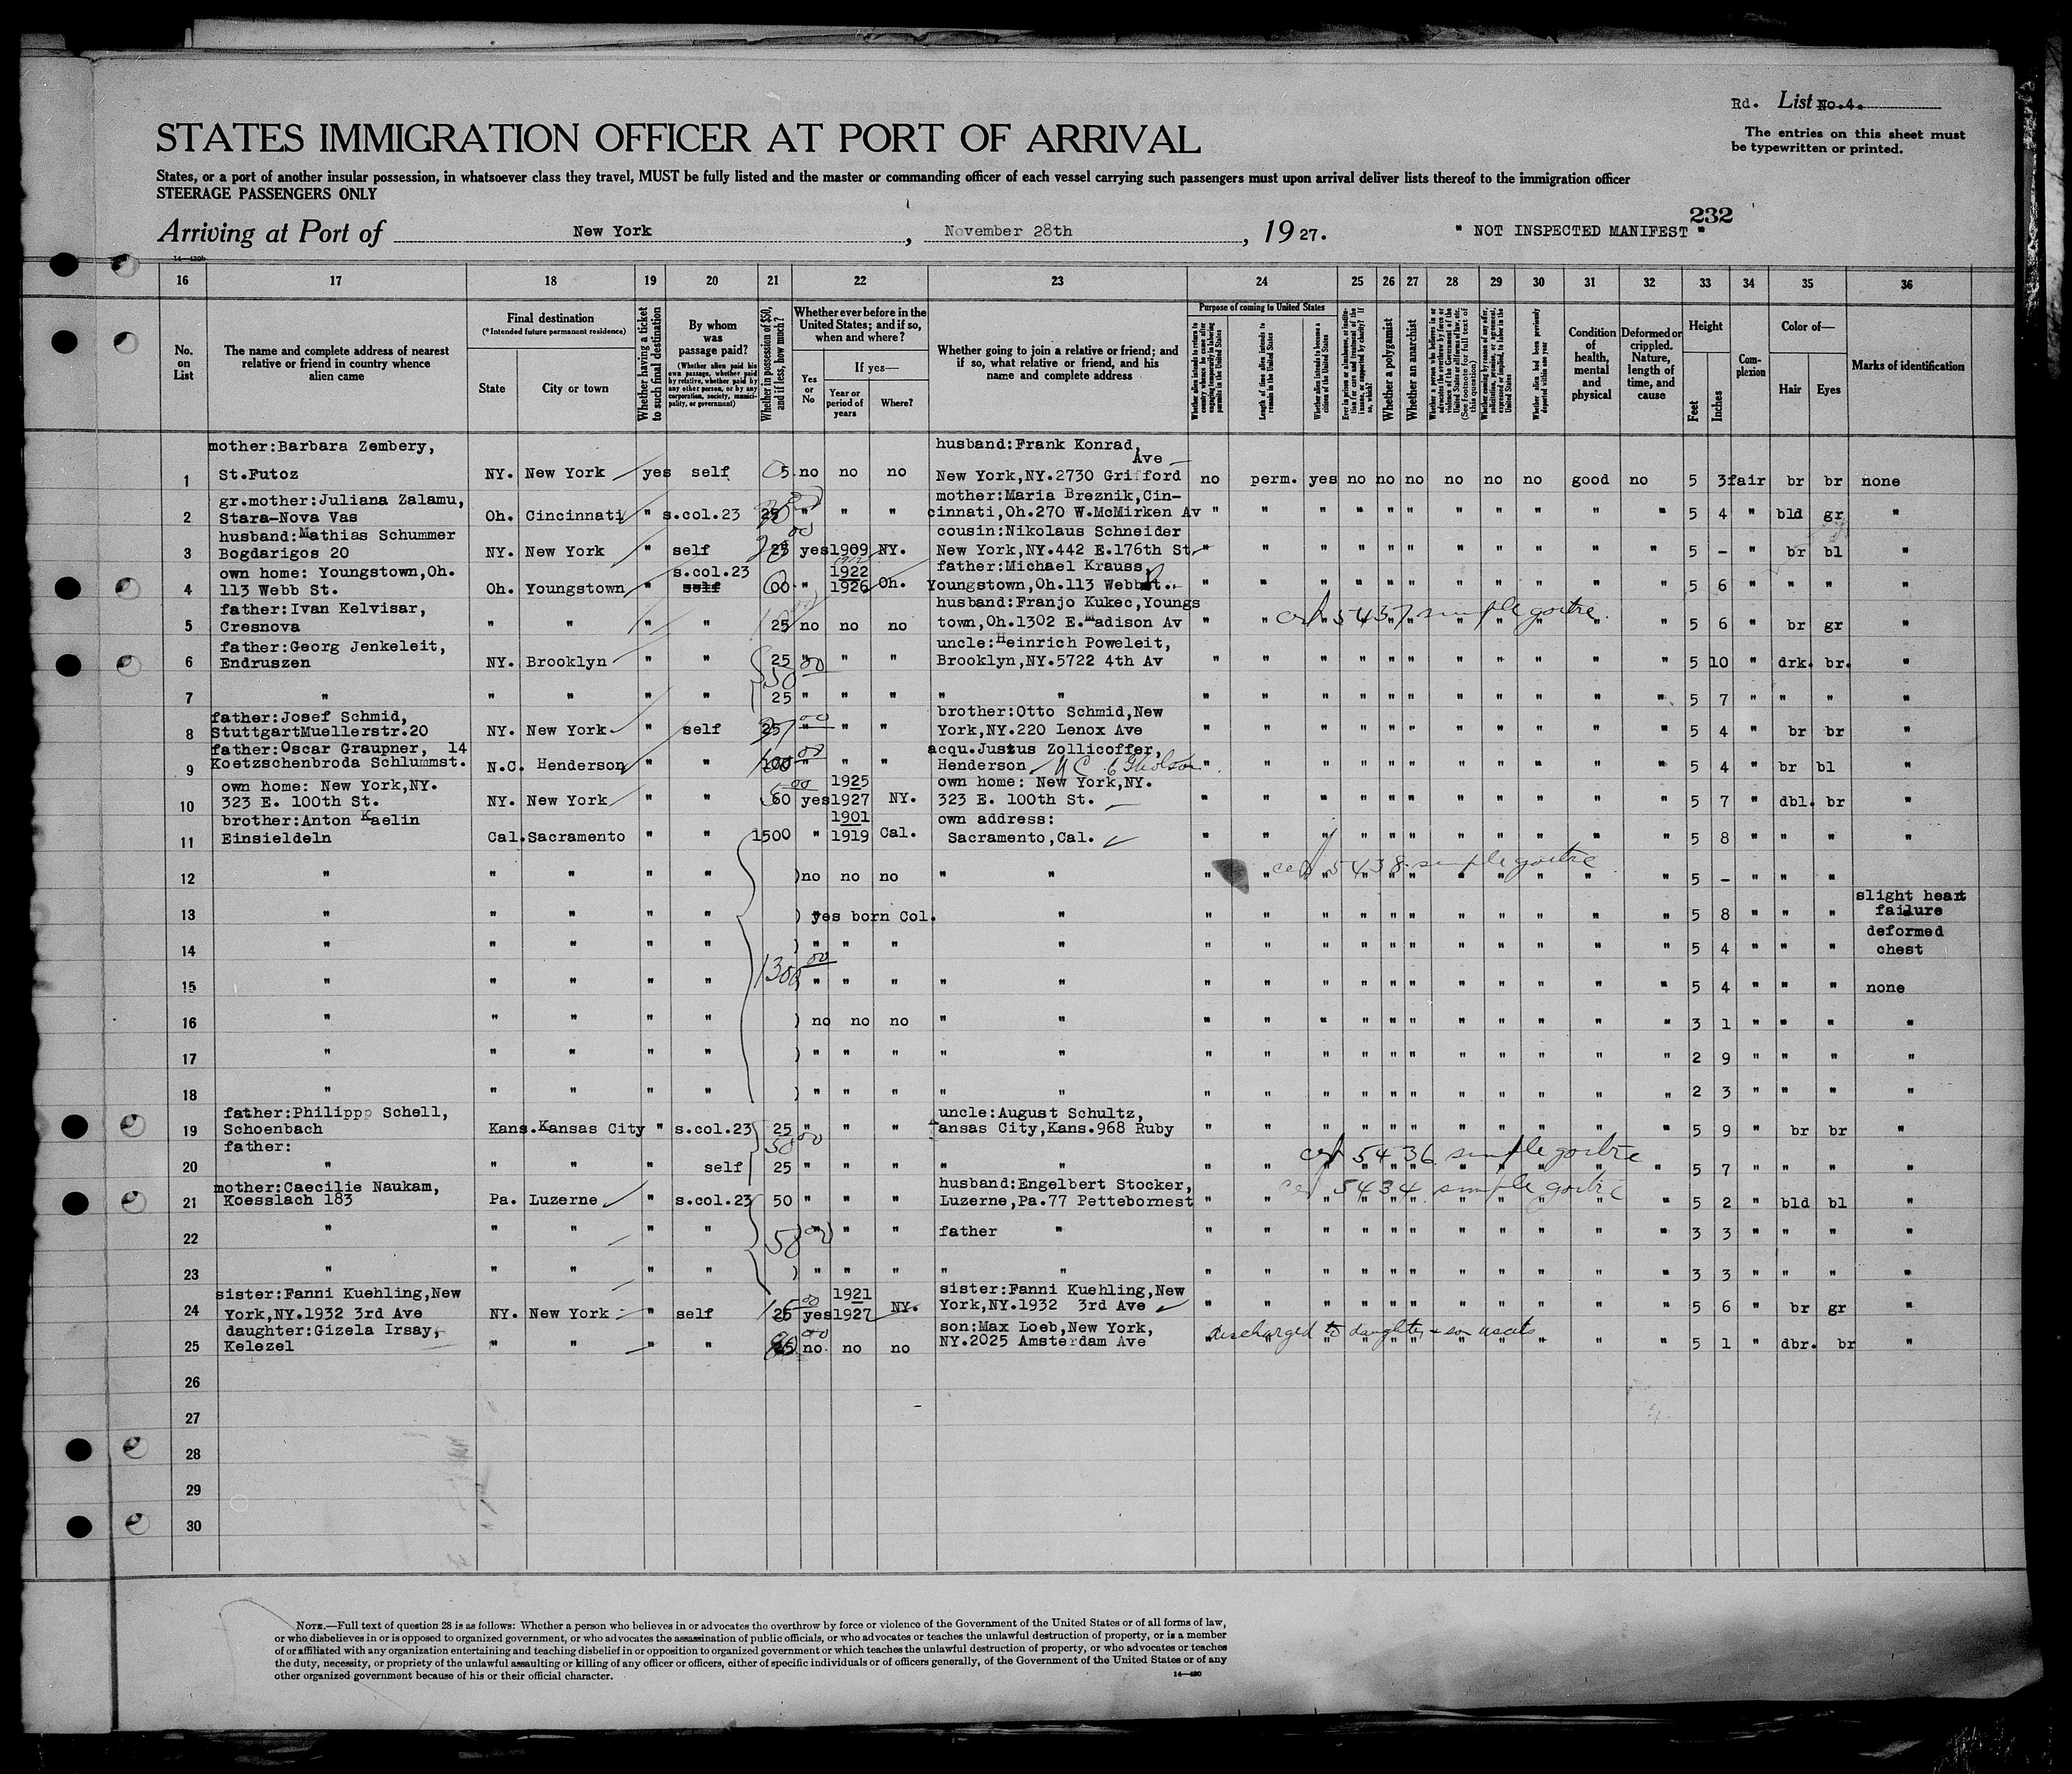 Rd. List No.4.
The entries on this sheet must
be typewritten or printed.
STATES IMMIGRATION OFFICER AT PORT OF ARRIVAL
States, or a port of another insular possession, in whatsoever class they travel, MUST be fully listed and the master or commanding officer of each vessel carrying such passengers must upon arrival deliver lists thereof to the immigration officer
STEERAGE PASSENGERS ONLY
232
Arriving at Port of New York, November 28th, 1927. " NOT INSPECTED MANIFEST "
16 17 18 19 20 21 22 23 24 25 26 27 28 29 30 31 32 33 34 35 36
No. on List
The name and complete address of nearest relative or friend in country whence alien came
Final destination
(*Intended future permanent residence)
State City or town
Whether having a ticket to such final destination
By whom was passage paid?
(Whether alien paid his own passage, whether paid by relative, whether paid by any other person, or by any corporation, society, municipality, or government)
Whether in possession of $50, and if less, how much?
Whether ever before in the United States; and if so, when and where?
Yes or No
If yes—
Year or period of years
Where?
Whether going to join a relative or friend; and if so, what relative or friend, and his name and complete address
Purpose of coming to United States
Length of time alien intends to remain in the United States
Whether alien intends to become a citizen of the United States
Whether a polygamist
Whether an anarchist
(See footnote for full text of this question)
Condition of health, mental and physical
Deformed or crippled. Nature, length of time, and cause
Height
Feet Inches
Complexion
Color of—
Hair Eyes
Marks of identification
mother:Barbara Zembery, husband:Frank Konrad,
Ave
1 St.Futoz NY. New York yes self 5 no no no New York,NY.2730 Grifford no perm. yes no no no no no no good no 5 3 fair br br none
gr.mother:Juliana Zalamu, mother:Maria Breznik,Cin-
2 Stara-Nova Vas Oh. Cincinnati " s.col.23 25 " " " cinnati,Oh.270 W.McMirken Av " " " " " " " " " " " 5 4 " bld gr "
husband:Mathias Schummer cousin:Nikolaus Schneider
3 Bogdarigos 20 NY. New York " self 25 yes 1909 NY. New York,NY.442 E.176th St. " " " " " " " " " " " 5 - " br bl "
own home: Youngstown,Oh. s.col.23 1922 father:Michael Krauss,
4 113 Webb St. Oh. Youngstown " self 60 " 1926 Oh. Youngstown,Oh.113 Webb St. " " " " " " " " " " " 5 6 " " " "
father:Ivan Kelvisar, husband:Franjo Kukec,Youngs
cert 5437 simple goitre
5 Cresnova " " " " 25 no no no town,Oh.1302 E.Madison Av " " " " " " " " " " " 5 6 " br gr "
father:Georg Jenkeleit, uncle:Heinrich Poweleit,
6 Endruszen NY. Brooklyn " " 25 " " " Brooklyn,NY.5722 4th Av " " " " " " " " " " " 5 10 " drk. br. "
50
7 " " " " " 25 " " " " " " " " " " " " " " " " " 5 7 " " " "
father:Josef Schmid, brother:Otto Schmid,New
8 StuttgartMuellerstr.20 NY. New York " self 25 " " " York,NY.220 Lenox Ave " " " " " " " " " " " 5 4 " br br "
father:Oscar Graupner, 14 acqu.Justus Zollicoffer,
9 Koetzschenbroda Schlummst. N.C. Henderson " " 100 " " " Henderson N C " " " " " " " " " " " 5 4 " br bl "
own home: New York,NY. 1925 own home: New York,NY.
10 323 E. 100th St. NY. New York " " 60 yes 1927 NY. 323 E. 100th St. " " " " " " " " " " " 5 7 " dbl. br "
brother:Anton Kaelin 1901 own address:
11 Einsieldeln Cal. Sacramento " " 1500 " 1919 Cal. Sacramento,Cal. " " " " " " " " " " " 5 8 " " " "
cert 5438 simple goitre
12 " " " " " )no no no " " " " " " " " " " " " " 5 - " " "
slight heart
13 " " " " " ) yes born Col. " " " " " " " " " " " " 5 8 " " " failure
deformed
14 " " " " " ) " " " " " " " " " " " " " " " 5 4 " " " chest
1300 00
15 " " " " " ) " " " " " " " " " " " " " " " " 5 4 " " " none
16 " " " " " ) no no no " " " " " " " " " " " " " 3 1 " " " "
17 " " " " " ) " " " " " " " " " " " " " " " 2 9 " " " "
18 " " " " " ) " " " " " " " " " " " " " " " 2 3 " " " "
father:Philippp Schell, uncle:August Schultz,
19 Schoenbach Kans. Kansas City " s.col.23 25 " " " Kansas City,Kans.968 Ruby " " " " " " " " " " " 5 9 " br br "
father: 50 00
cert 5436 simple goitre
20 " " " " self 25 " " " " " " " " " " " " " " " " " 5 7 " " " "
mother:Caecilie Naukam, husband:Engelbert Stocker,
cert 5434 simple goitre
21 Koesslach 183 Pa. Luzerne " s.col.23 50 " " " Luzerne,Pa.77 Pettebornest " " " " " " " " " " " 5 2 " bld bl "
22 " " " " " 50 00 " " " father " " " " " " " " " " " " 3 3 " " " "
23 " " " " " ) " " " " " " " " " " " " " " " " 3 3 " " " "
sister:Fanni Kuehling,New 1921 sister:Fanni Kuehling,New
24 York,NY.1932 3rd Ave NY. New York " self 25 yes 1927 NY. York,NY.1932 3rd Ave " " " " " " " " " " " 5 6 " br gr "
daughter:Gizela Irsay, son:Max Loeb,New York,
discharged to daughter & son
25 Kelezel " " " " 25 no. no no NY.2025 Amsterdam Ave " " " " " " " " " " " 5 1 " dbr. br "
26
27
28
29
30
NOTE.—Full text of question 28 is as follows: Whether a person who believes in or advocates the overthrow by force or violence of the Government of the United States or of all forms of law,
or who disbelieves in or is opposed to organized government, or who advocates the assassination of public officials, or who advocates or teaches the unlawful destruction of property, or is a member
of or affiliated with any organization entertaining and teaching disbelief in or opposition to organized government or which teaches the unlawful destruction of property, or who advocates or teaches
the duty, necessity, or propriety of the unlawful assaulting or killing of any officer or officers, either of specific individuals or of officers generally, of the Government of the United States or of any
other organized government because of his or their official character.
14—420